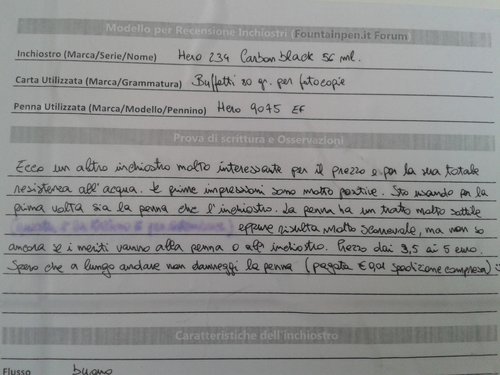 Modello per Recensione Inchiostri (Fountainpen.it Forum)
Inchiostro (Marca/Serie/Nome) Hero 234 Carbon black 56 ml.
Carta Utilizzata (Marca/Grammatura) Buffetti 80 gr. per fotocopie
Penna Utilizzata (Marca/Modello/Pennino) Hero 9075 EF
Prova di scrittura e Osservazioni
Ecco un altro inchiostro molto interessante per il prezzo e per la sua totale
resistenza all'acqua. Le prime impressioni sono molto positive. Sto usando per la
prima volta sia la penna che l'inchiostro. La penna ha un tratto molto sottile
eppure risulta molto scorrevole, ma non so
ancora se i meriti vanno alla penna o all'inchiostro. Prezzo dai 3,5 ai 5 euro.
Spero che a lungo andare non danneggi la penna (pagata € 9,01 spedizione compresa) :
Caratteristiche dell'inchiostro
Flusso buono